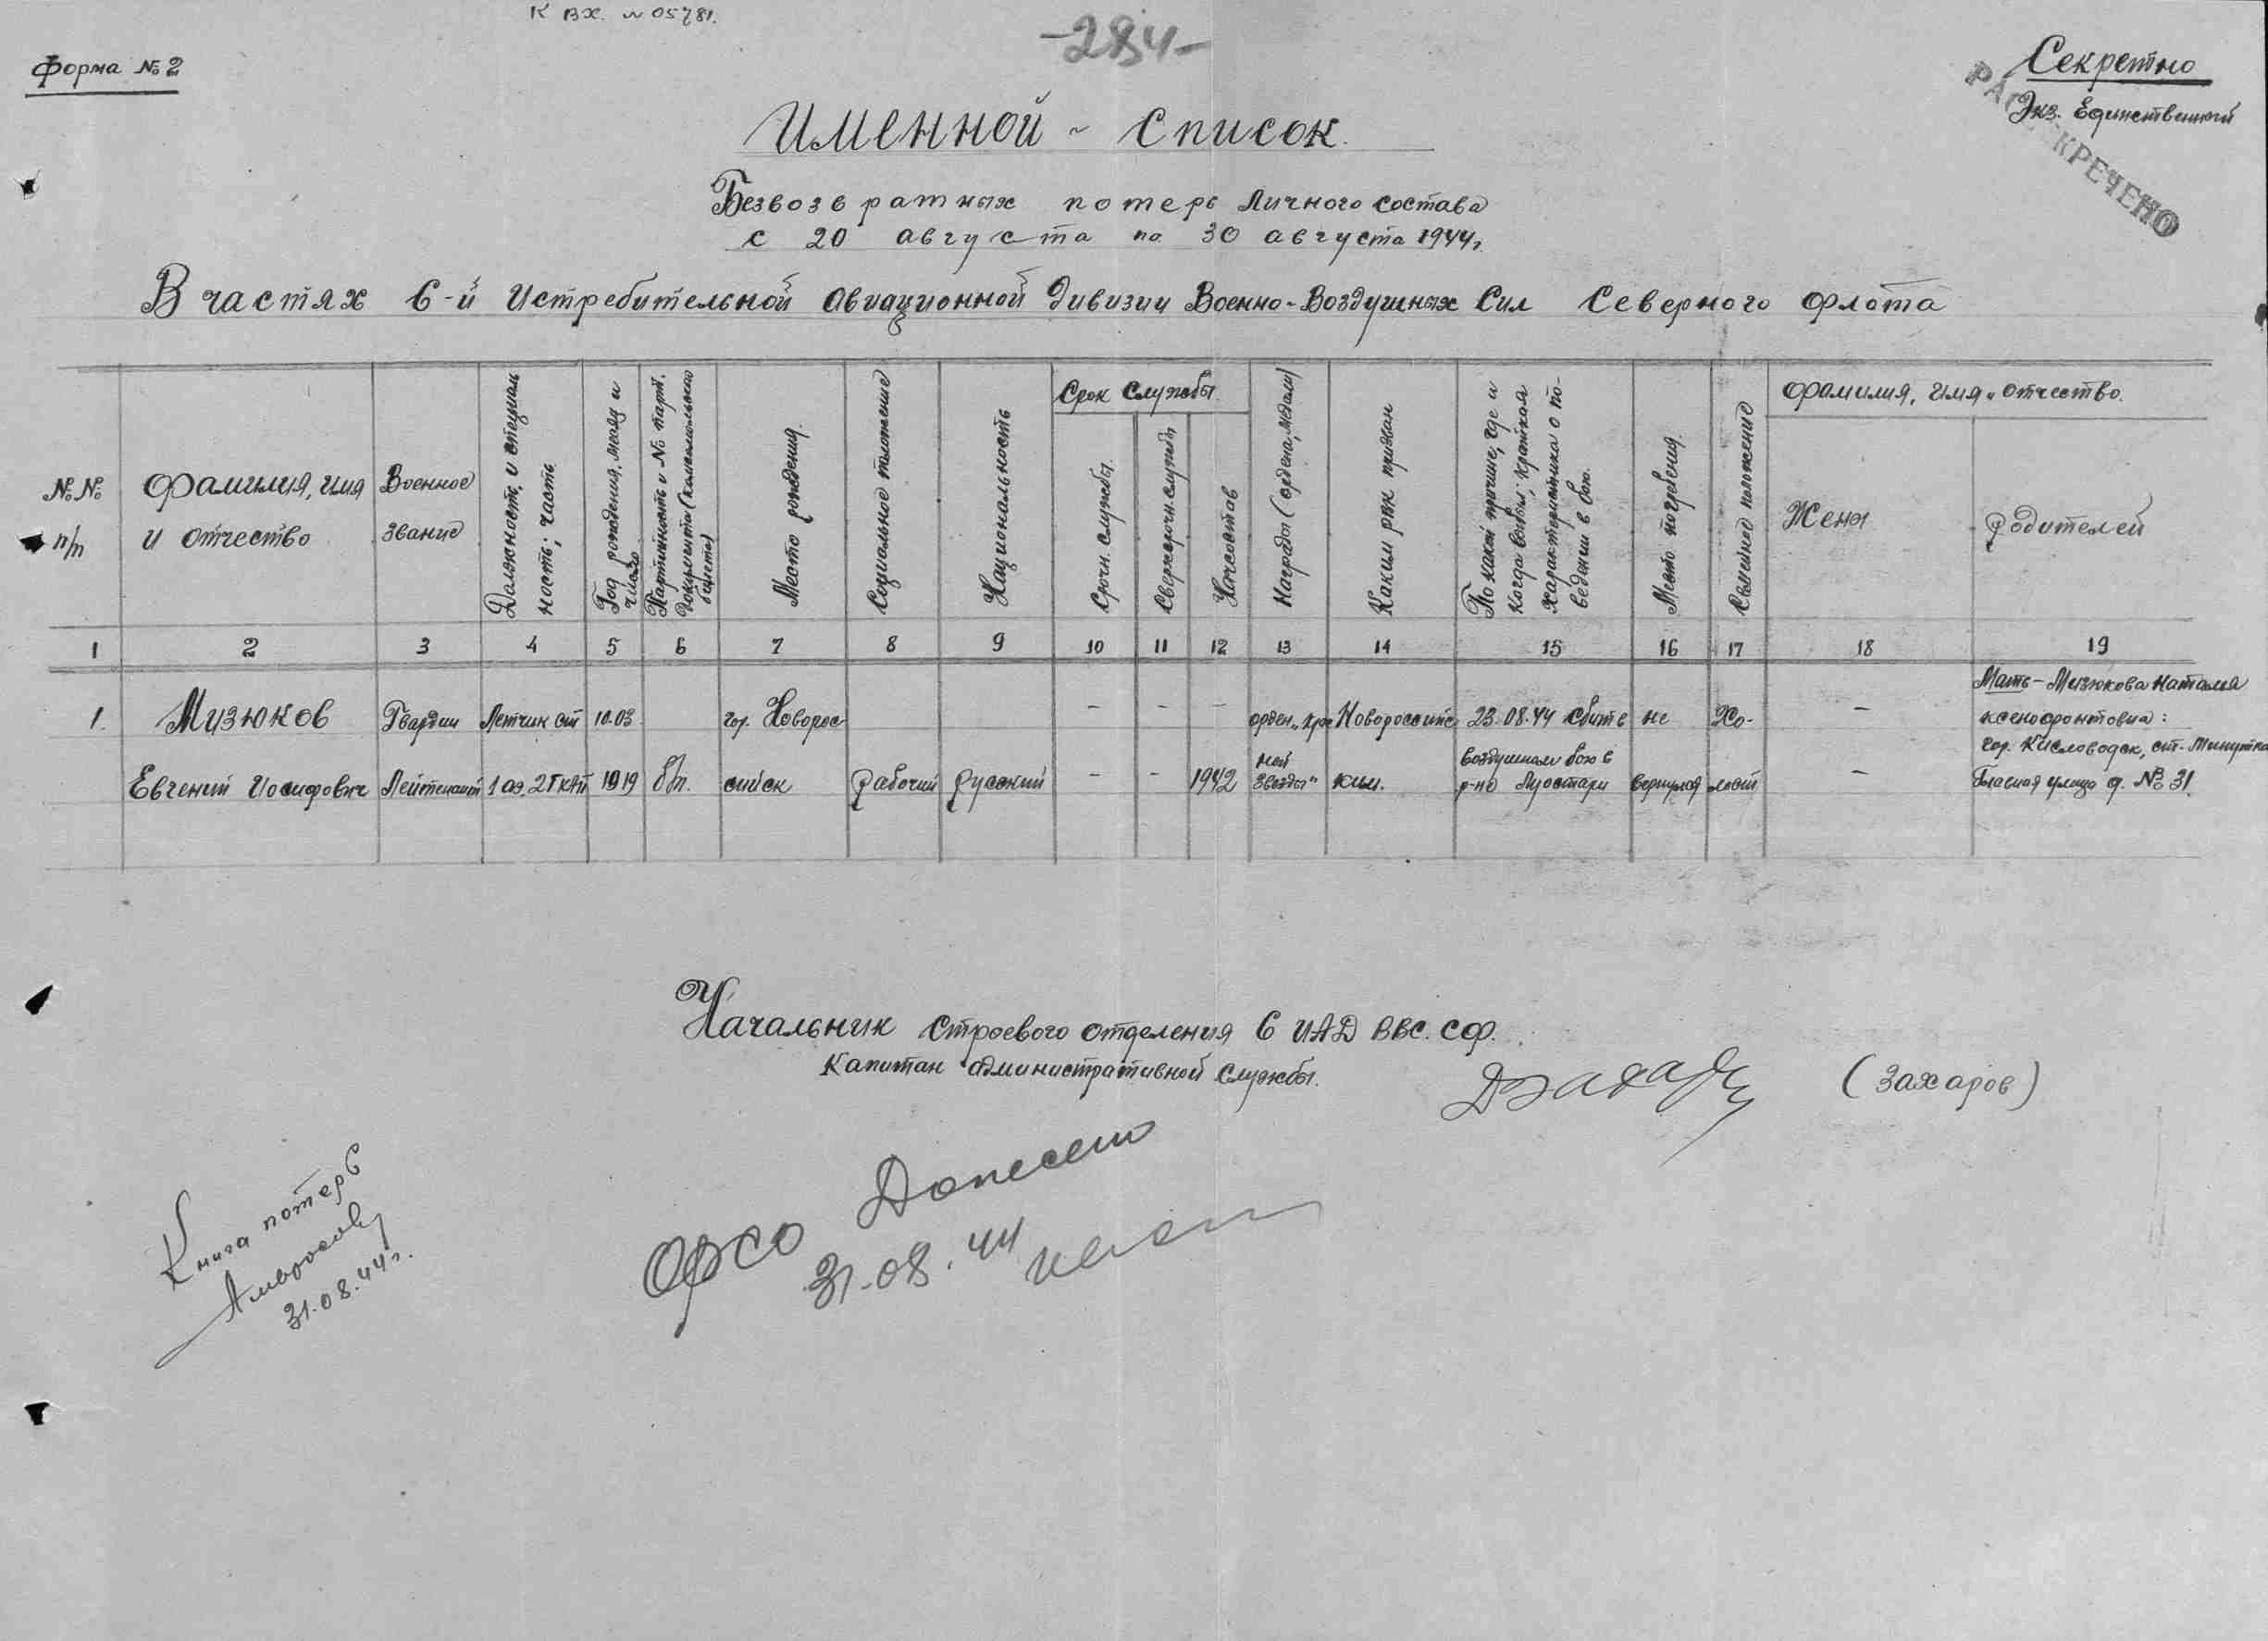 К вх. № 05781.
-284-
Форма №2
Секретно
Экз. Единственный
РАССЕКРЕЧЕНО
Именной - список.
Безвозвратных потерь личного состава
с 20 августа по 30 августа 1944г.
В частях 6-й Истребительной Авиационной Дивизии Военно-Воздушных Сил Северного Флота
№№ п/п
Фамилия, имя и отчество
Военное звание
Должность и специальность; часть
Год рождения, месяц и число
Партийность и № парт. документа (комсомольского билета)
Место рождения.
Социальное положение
Национальность
Срок службы.
Срочн. службы.
Сверхсрочн. службы
Начсостав
Награды (ордена, медали)
Каким рвк призван
По какой причине, где и когда выбыл, краткая характеристика о поведении в бою.
Место погребения.
Семейное положение
Фамилия, имя и отчество.
Жены
Родителей
1 2 3 4 5 6 7 8 9 10 11 12 13 14 15 16 17 18 19
1. Мизюков Гвардии Летчик ст 10.03 гор. Новорос- - - - орден „Крас Новороссийс 23.08.44 сбит в не Хо- -
Евгений Иосифович Лейтенант 1 аэ, 2ГКАП 1919 б/п. сийск Рабочий Русский - - 1942 ной Звезды" ким. воздушном бою в р-не Луостари вернулся лост -
Мать - Мизюкова Наталья
Ксенофонтовна:
гор. Кисловодск, ст. Минутка
Главная улица д. № 31.
Начальник строевого отделения 6 ИАД ВВС. СФ.
Капитан административной службы.
(Захаров)
Книга потерь
31.08.44г.
ОФСО Донесено
31.08.44